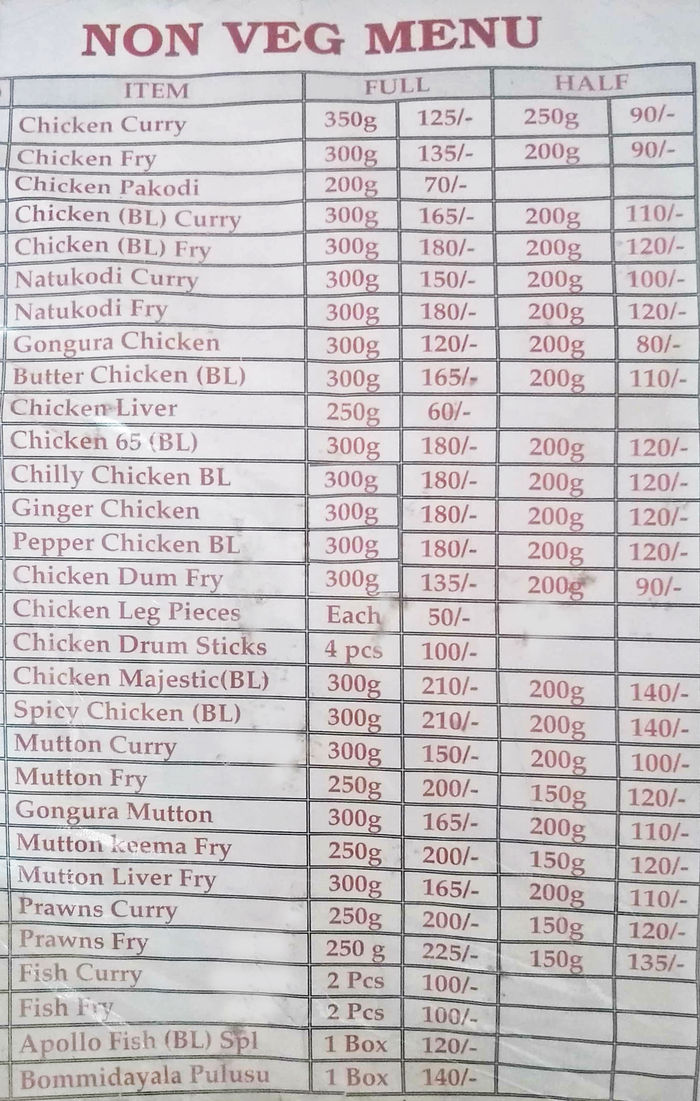 NON VEG MENU
ITEM FULL HALF
Chicken Curry 350g 125/- 250g 90/-
Chicken Fry 300g 135/- 200g 90/-
Chicken Pakodi 200g 70/-
Chicken (BL) Curry 300g 165/- 200g 110/-
Chicken (BL) Fry 300g 180/- 200g 120/-
Natukodi Curry 300g 150/- 200g 100/-
Natukodi Fry 300g 180/- 200g 120/-
Gongura Chicken 300g 120/- 200g 80/-
Butter Chicken (BL) 300g 165/- 200g 110/-
Chicken Liver 250g 60/-
Chicken 65 (BL) 300g 180/- 200g 120/-
Chilly Chicken BL 300g 180/- 200g 120/-
Ginger Chicken 300g 180/- 200g 120/-
Pepper Chicken BL 300g 180/- 200g 120/-
Chicken Dum Fry 300g 135/- 200g 90/-
Chicken Leg Pieces Each 50/-
Chicken Drum Sticks 4 pcs 100/-
Chicken Majestic(BL) 300g 210/- 200g 140/-
Spicy Chicken (BL) 300g 210/- 200g 140/-
Mutton Curry 300g 150/- 200g 100/-
Mutton Fry 250g 200/- 150g 120/-
Gongura Mutton 300g 165/- 200g 110/-
Mutton keema Fry 250g 200/- 150g 120/-
Mutton Liver Fry 300g 165/- 200g 110/-
Prawns Curry 250g 200/- 150g 120/-
Prawns Fry 250 g 225/- 150g 135/-
Fish Curry 2 Pcs 100/-
Fish Fry 2 Pcs 100/-
Apollo Fish (BL) Spl 1 Box 120/-
Bommidayala Pulusu 1 Box 140/-